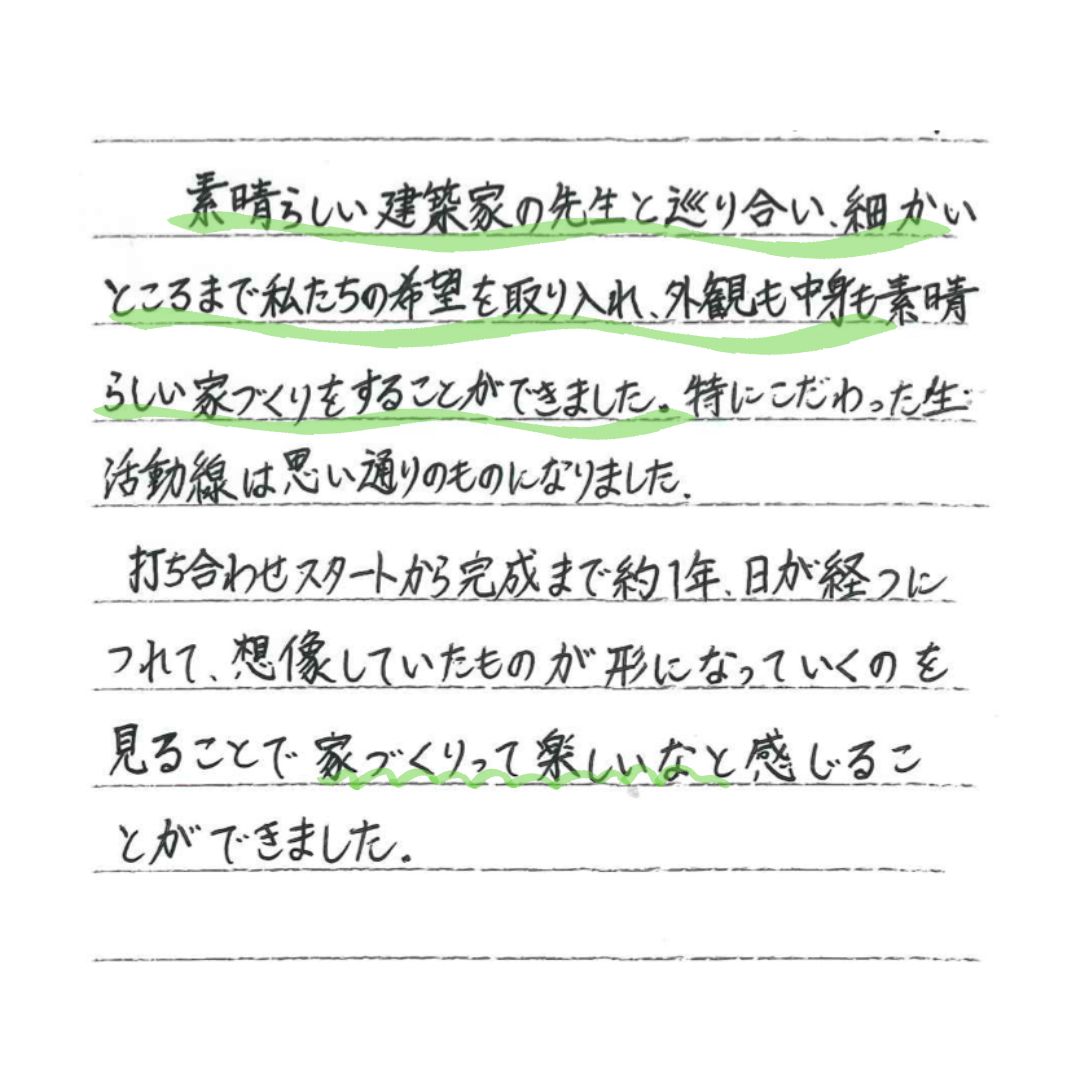 素晴らしい建築家の先生と巡り合い、細かい
ところまで私たちの希望を取り入れ、外観も中身も素晴
らしい家づくりをすることができました。特にこだわった生
活動線は思い通りのものになりました。
打ち合わせスタートから完成まで約1年、日が経つに
つれて、想像していたものが形になっていくのを
見ることで家づくりって楽しいなと感じるこ
とができました。